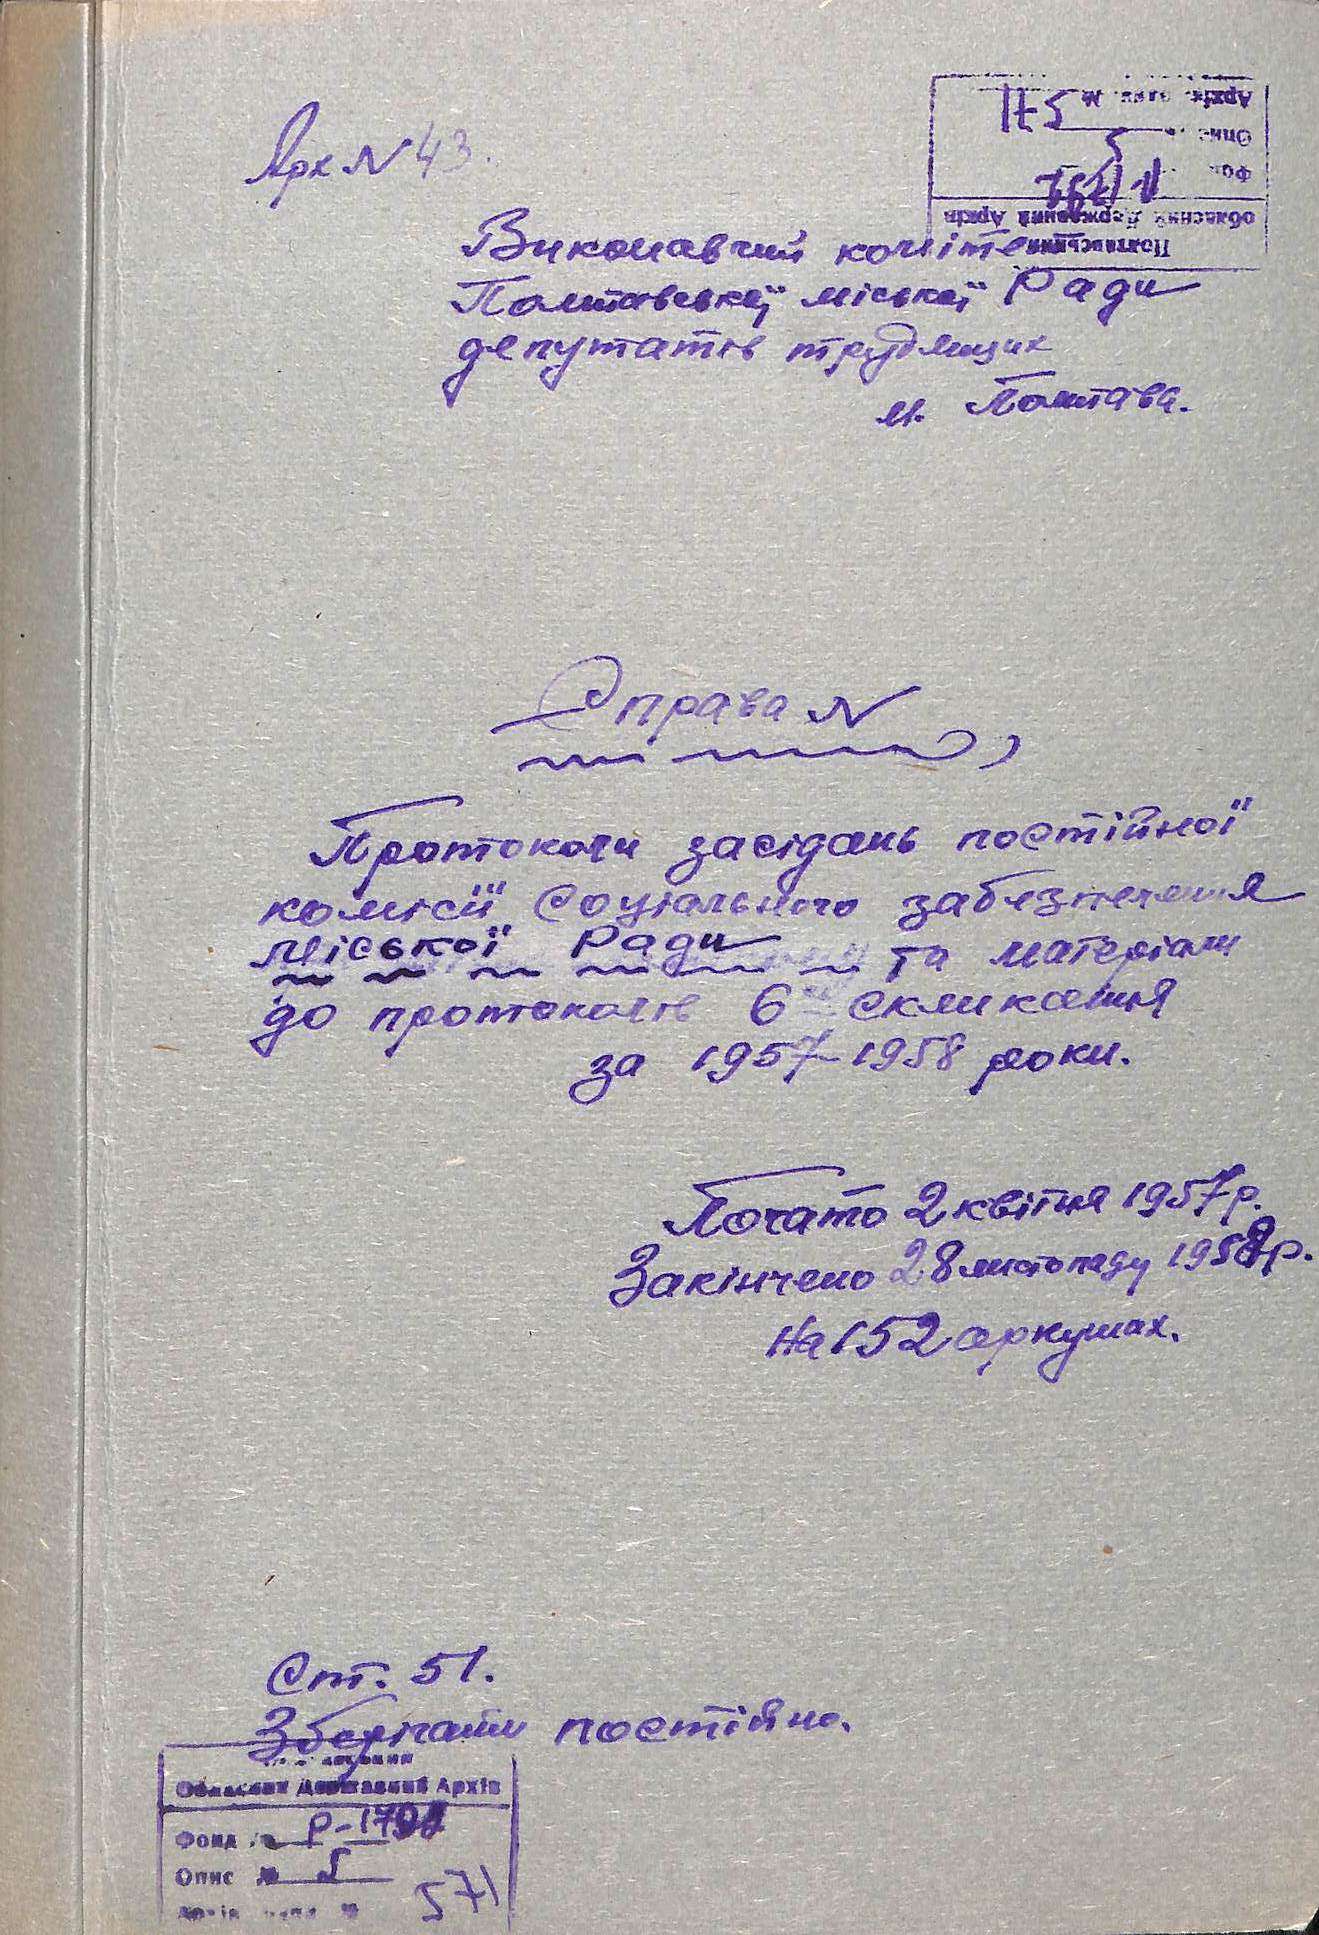 Арх N 43.
Архів. №
571
Опис 5
Фон
Обласний Державний Архів
Полтавський
Виконавчий комітет
Полтавської міської Ради
депутатів трудящих
м. Полтава.
Справа N
Протоколи засідань постійної
комісії соціального забезпечення
міської Ради та матеріали
до протоколів 6 скликання
за 1957-1958 роки.
Почато 2 квітня 1957 р.
Закінчено 28 листопаду 1958 р.
На 152 аркушах.
Ст. 51.
Зберігати постійно.
Обласний Державний Архів
Фонд № Р-1792
Опис № 5
Архів 571